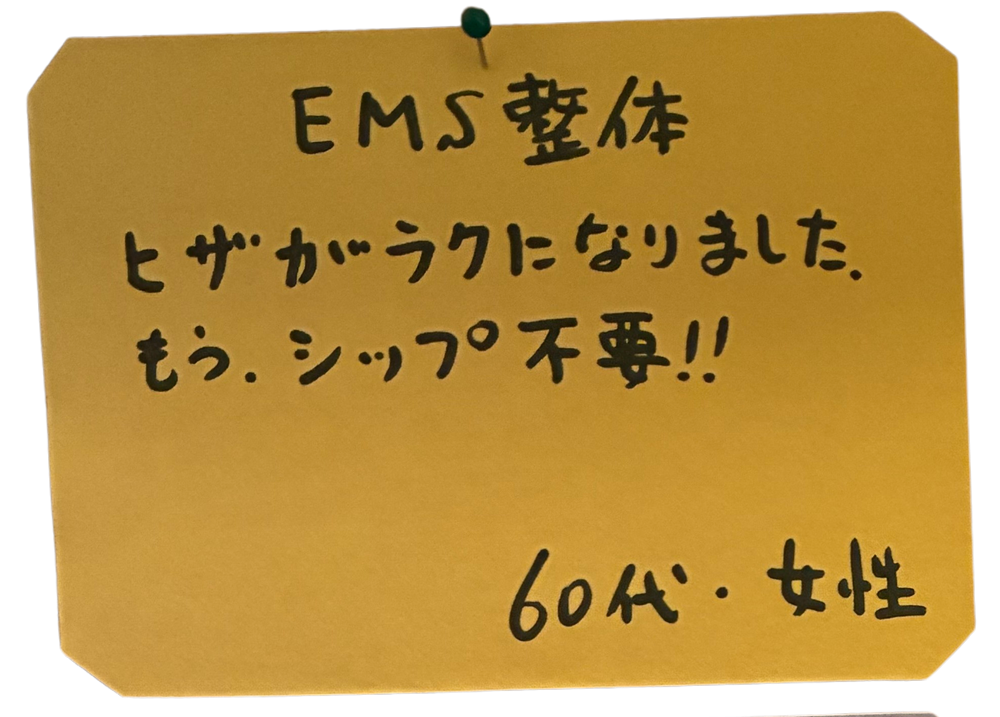 EMS整体
ヒザがラクになりました.
もう.シップ不要!!
60代・女性